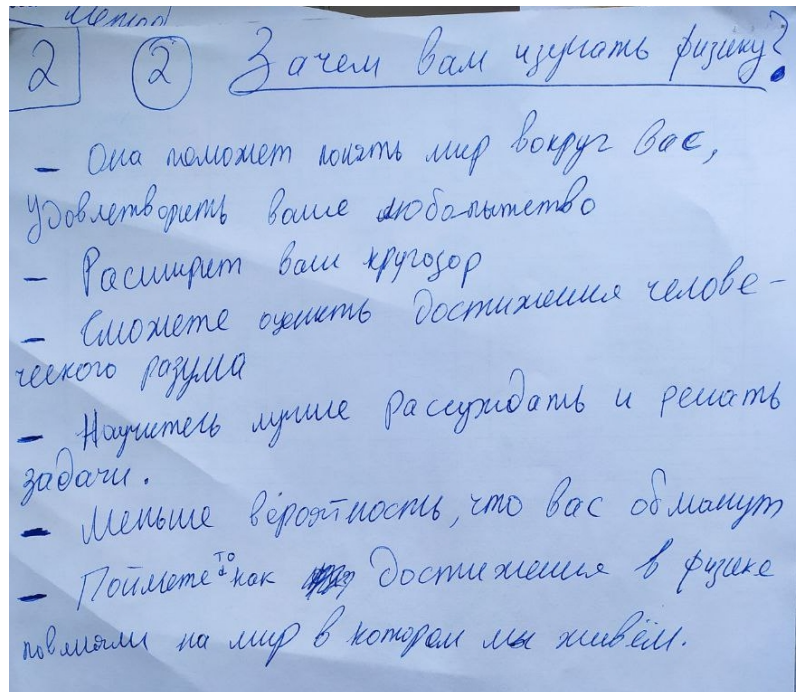 Метод
2 2 Зачем вам изучать физику?
- Она поможет понять мир вокруг вас,
удовлетворить ваше любопытство
- Расширет ваш кругозор
- Сможете оценить достижения челове-
ческого разума
- Научитесь лучше рассуждать и решать
задачи.
- Меньше вероятность, что вас обманут
- Поймете то как достижения в физике
повлияли на мир в котором мы живём.